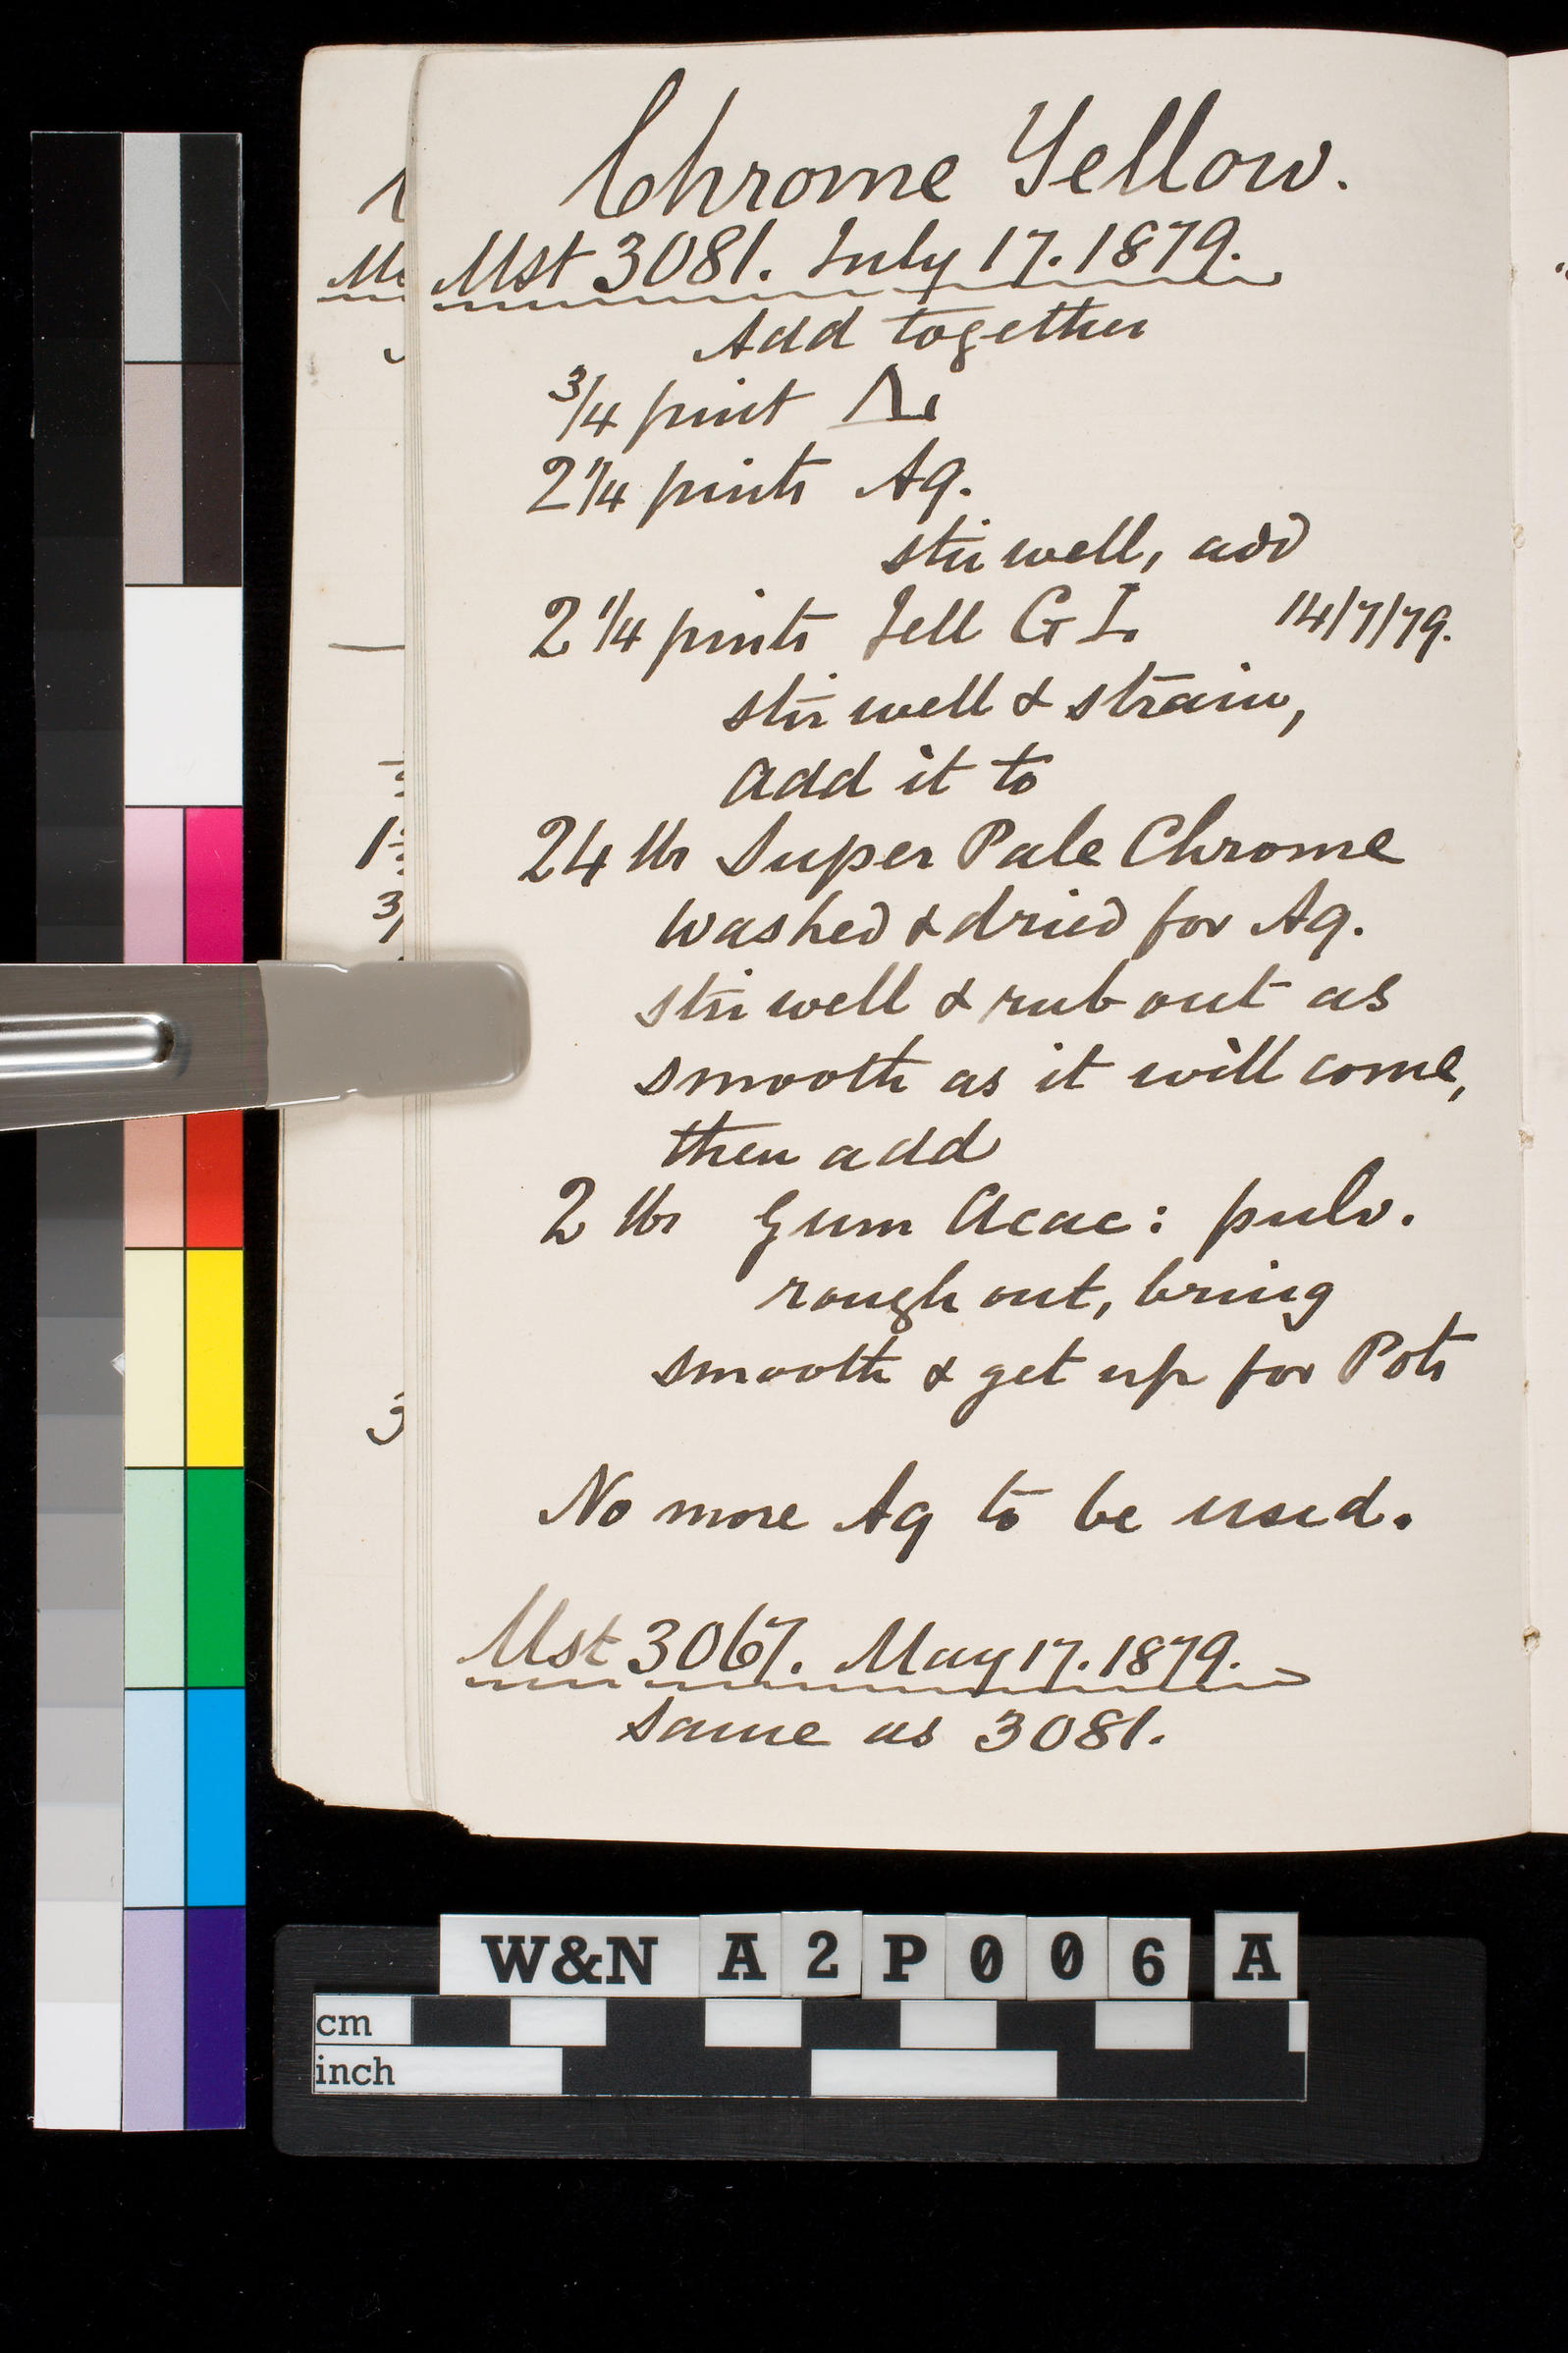 Chrome Yellow.
Mst 3081. July 17. 1879.
Add together
3/4 pint
2 1/4 pints Aq.
stir well, add
2 1/4 pints Jell G I. 14/7/79.
stir well & strain,
add it to
24 lbs Super Pale Chrome
washed & dried for Aq.
stir well & rub out as
smooth as it will come,
then add
2 lbs Gum Acac: pulv.
rough out, bring
smooth & get up for Pots
No more Aq to be used.
Mst 3067. May 17. 1879.
Same as 3081.
W&N A2P006 A
cm
inch